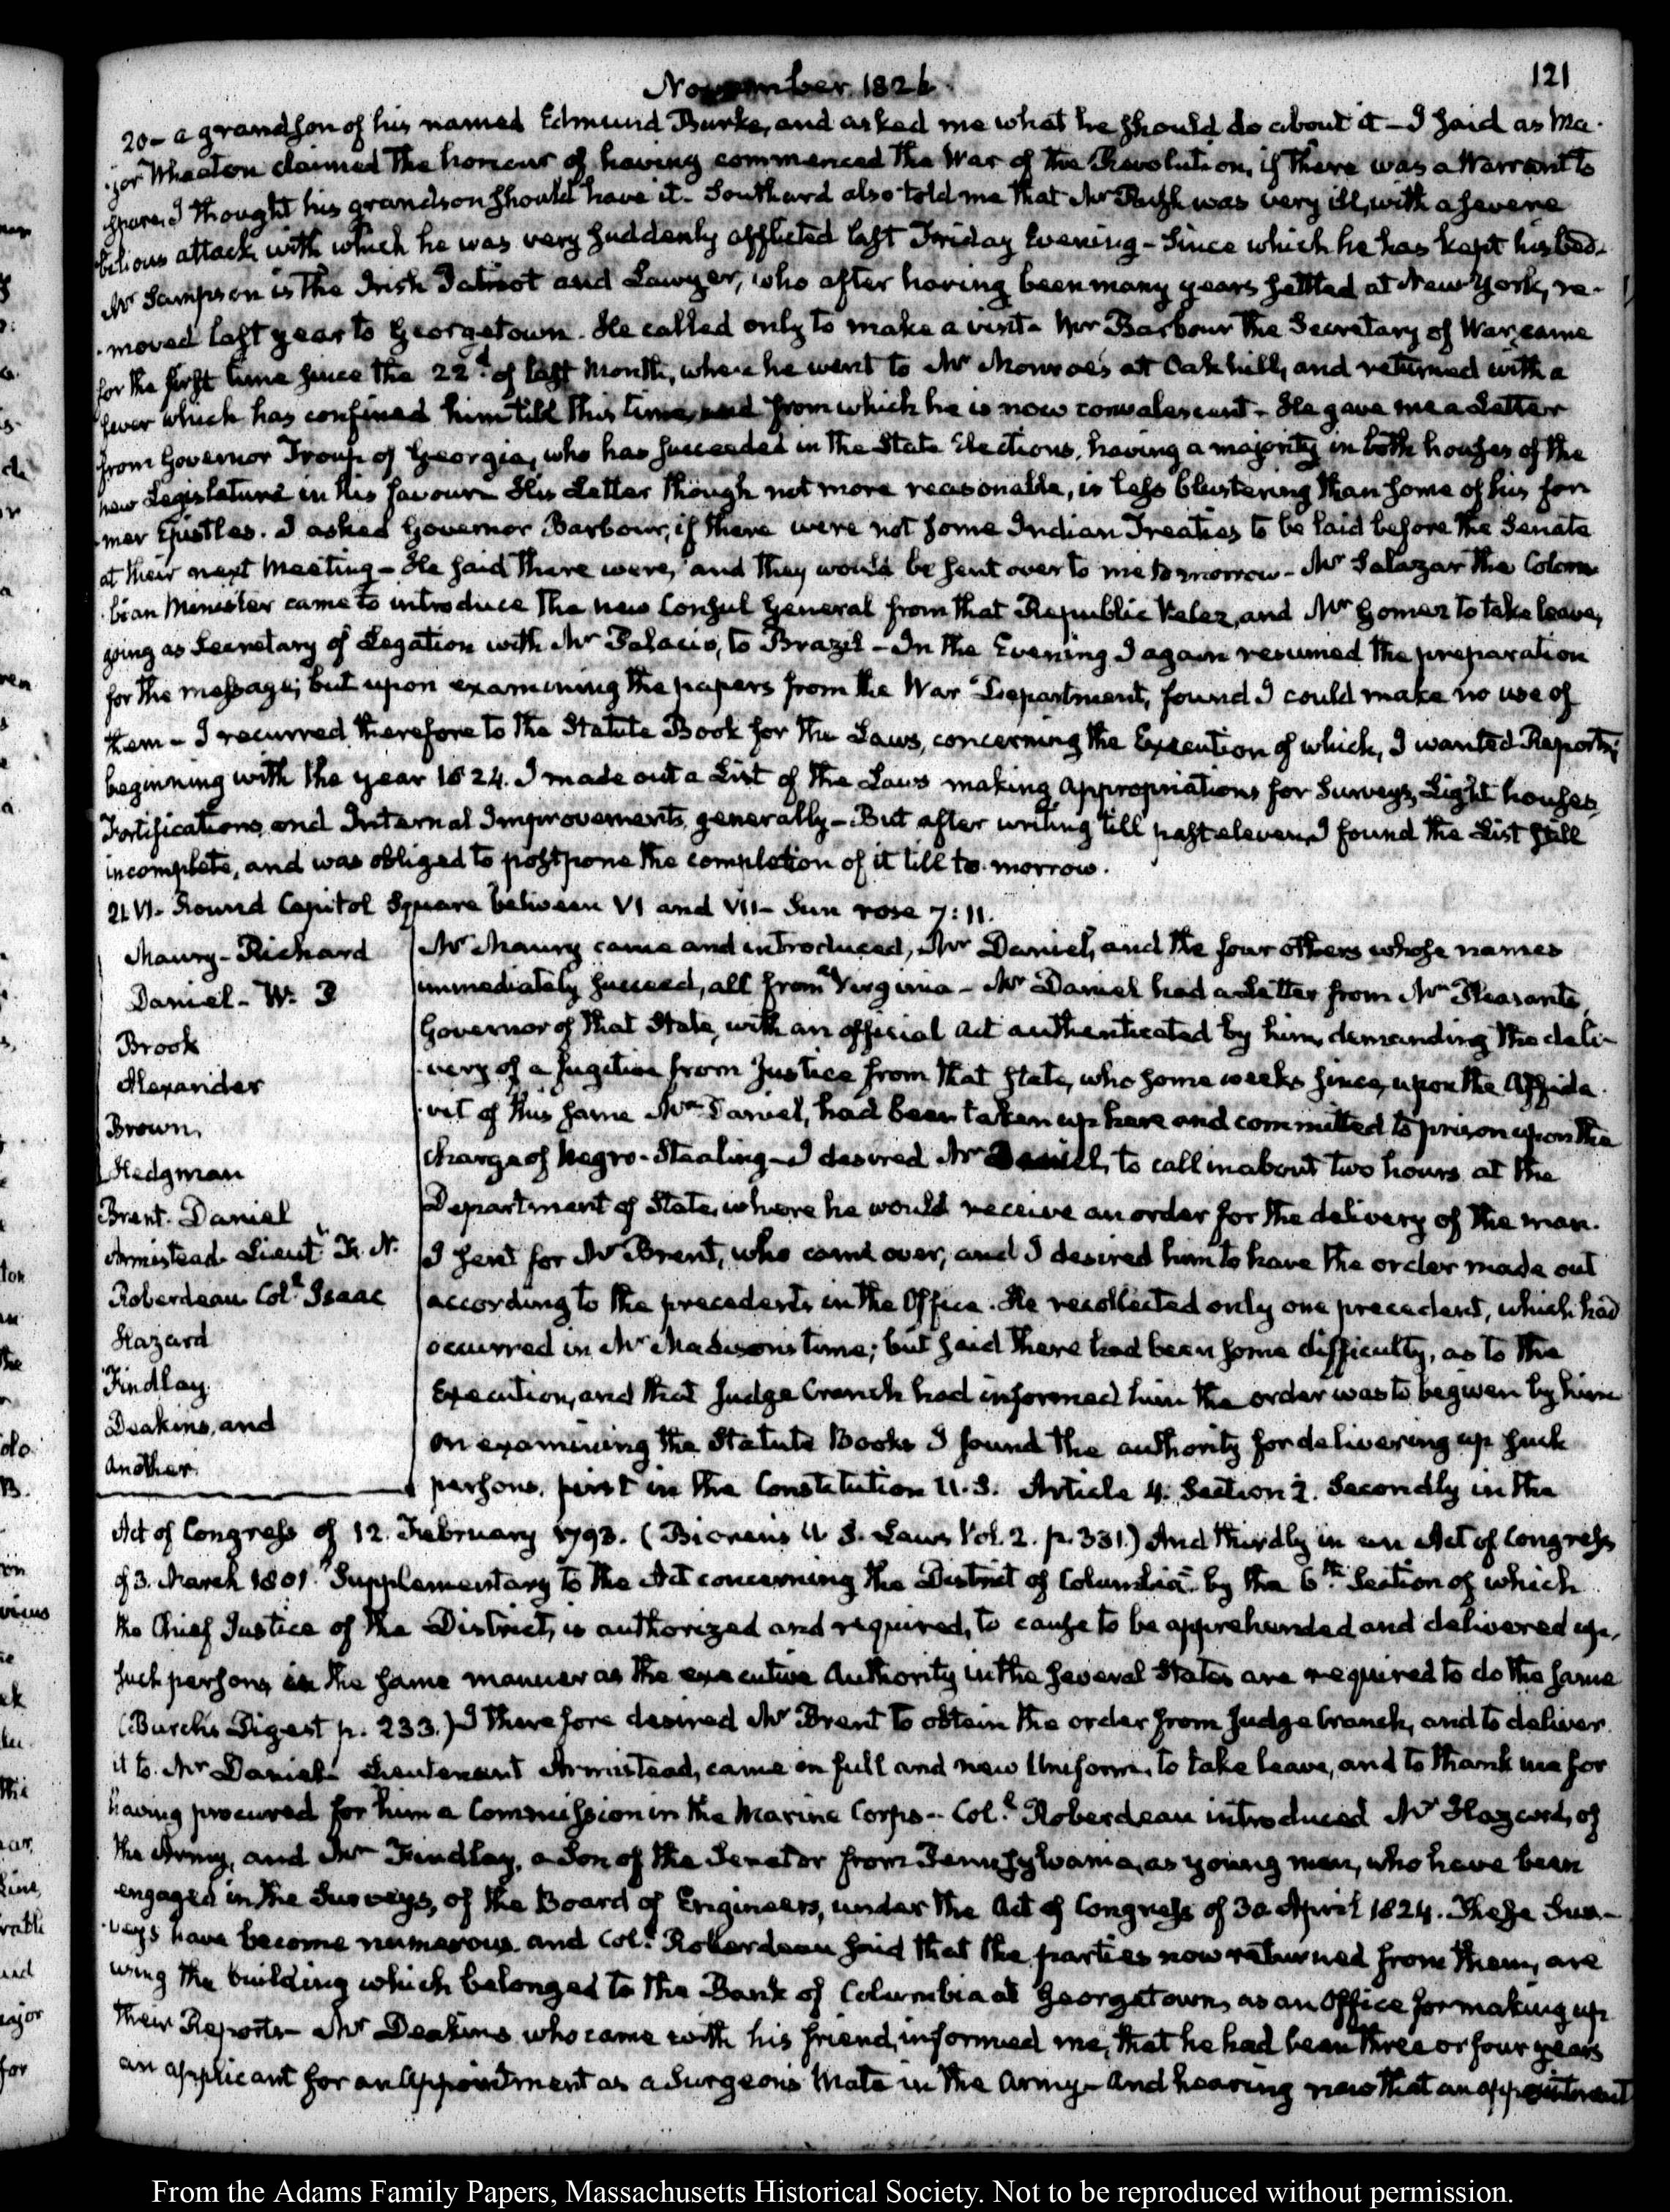 November 1826.
121
20– a grandson of his named Edmund Burke, and asked me what he should do about it – I said as Ma-
-jor Wheaton claimed the honour of having commenced the War of the Revolution, if there was a Warrant to
spare, I thought his grandson should have it – Southard also told me that Mr Rush was very ill, with a severe
bilious attack with which he was very suddenly afflicted last Friday Evening – Since which he has kept his bed.
Mr Sampson is the Irish Patriot and Lawyer, who after having been many years settled at New-York, re-
-moved last year to Georgetown. He called only to make a visit – Mr Barbour the Secretary of War, came
for the first time since the 22d. of last Month, when he went to Mr Monroe's at Oakhill, and returned with a
fever which has confined him till this time, and from which he is now convalescent – He gave me a Letter
from Governor Troup of Georgia, who has succeeded in the State Elections, having a majority in both houses of the
new Legislature in his favour – His Letter though not more reasonable, is less blustering than some of his for-
-mer Epistles. I asked Governor Barbour, if there were not some Indian Treaties to be laid before the Senate
at their next Meeting – He said there were, and they would be sent over to me to morrow – Mr Salazar the Colom-
-bian Minister came to introduce the new Consul General from that Republic Velez, and Mr Gomez to take leave,
going as Secretary of Legation with Mr Palacio, to Brazil – In the Evening I again resumed the preparation
for the message; but upon examining the papers from the War Department, found I could make no use of
them – I recurred therefore to the Statute Book for the Laws, concerning the Execution of which, I wanted Reports;
beginning with the year 1824. I made out a List of the Laws making appropriations for Surveys, Light houses,
Fortifications, and Internal Improvements generally – But after writing till past eleven, I found the List still
incomplete, and was obliged to postpone the completion of it till to-morrow.
21. VI. Round Capitol Square between VI and VII – Sun rose 7:11.
Maury – Richard
Daniel – W.
Brook
Alexander
Brown,
Hedgman
Brent. Daniel
Armistead Lieutt.
Roberdeau Coll. Isaac
Hazard
Findlay
Deakins, and
another.
Mr Maury came and introduced, Mr Daniel, and the four others whose names
immediately succeed, all from Virginia – Mr Daniel had a Letter from Mr Pleasants
Governor of that State, with an official act authenticated by him, demanding the deli-
-very of a fugitive from Justice from that State, who some weeks since, upon the Affida-
-vit of this same Mr Daniel, had been taken up here and committed to prison upon the
charge of Negro-Stealing – I desired Mr Daniel, to call in about two hours at the
Department of State, where he would receive an order for the delivery of the man.
I sent for Mr Brent, who came over, and I desired him to have the order made out
according to the precedents in the Office. He recollected only one precedent, which had
occurred in Mr Madison's time; but said there had been some difficulty, as to the
Execution, and that Judge Cranch had informed him the order was to be given by him
On examining the Statute Books I found the authority for delivering up such
persons, first in the Constitution U.S. Article 4. Section 2. Secondly in the
Act of Congress of 12. February 1793. (Bioren's U S. Laws Vol. 2. p. 331.) And thirdly in an Act of Congress
of 3. March 1801. "Supplementary to the Act concerning the District of Columbia" by the 6th. Section of which
the Chief Justice of the District, is authorized and required, to cause to be apprehended and delivered up,
such persons, in the same manner as the executive Authority in the several States are required to do the same
(Burch's Digest p. 233.) I therefore desired Mr Brent to obtain the order from Judge Cranch, and to deliver
it to Mr Daniel – Lieutenant Armistead, came in full and new Uniform, to take leave, and to thank me for
having procured for him a Commission in the Marine Corps – Coll. Roberdeau introduced Mr Hazard, of
the Army, and Mr Findlay, a Son of the Senator from Pennsylvania, as young men, who have been
engaged in the Surveys, of the Board of Engineers, under the Act of Congress of 30 April 1824. These Sur-
-veys have become numerous, and Coll. Roberdeau said that the parties now returned from them, are
using the building which belonged to the Bank of Columbia at Georgetown, as an Office for making up
their Reports – Mr Deakins, who came with his friend, informed me, that he had been three or four years
an applicant for an Appointment as a Surgeon's Mate in the Army – And hearing now that an appointment
From the Adams Family Papers, Massachusetts Historical Society. Not to be reproduced without permission.